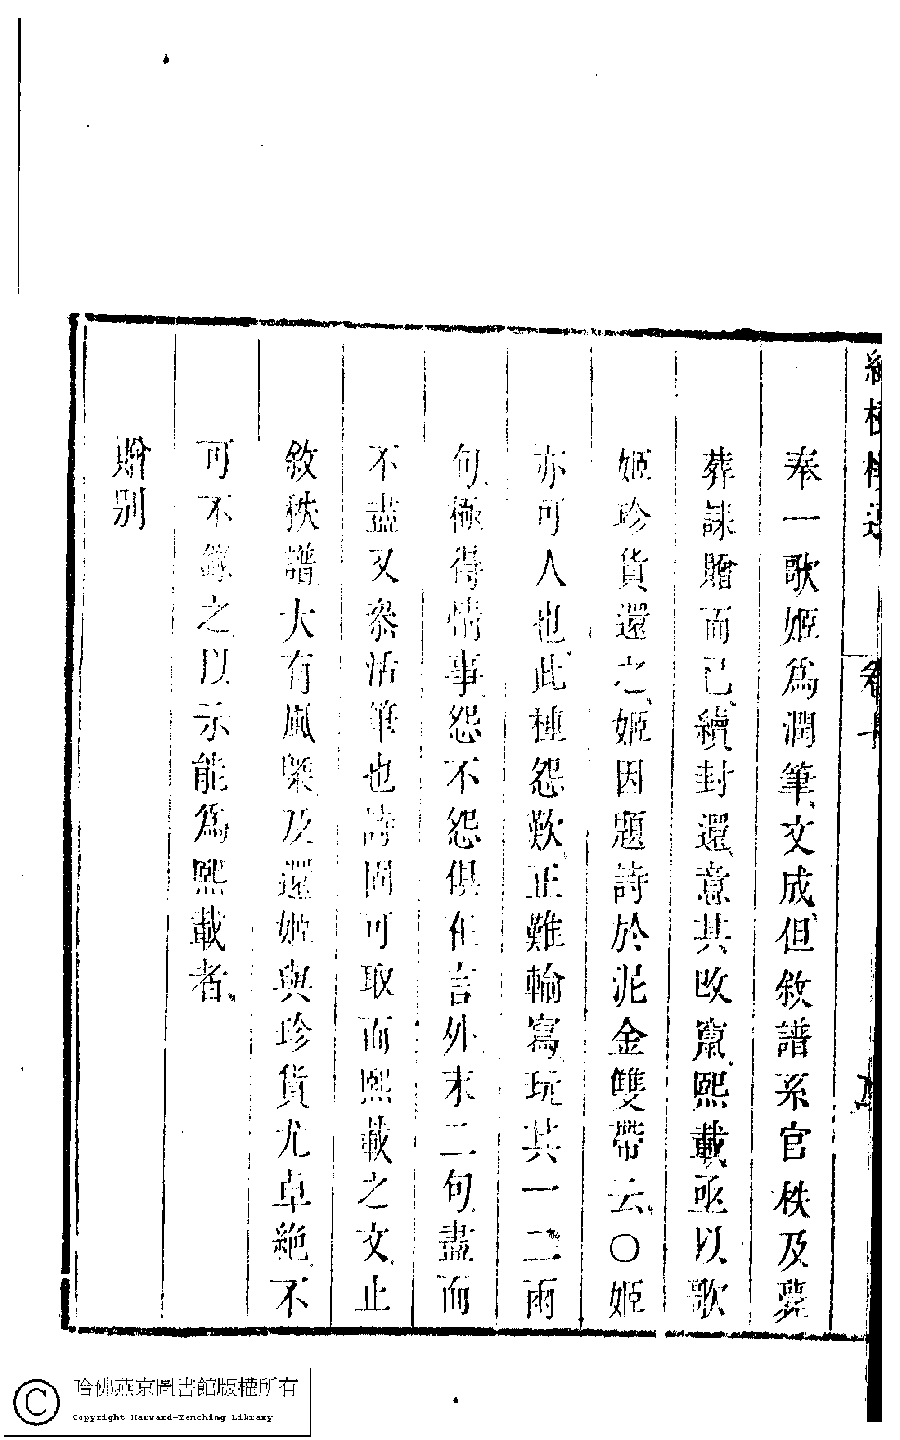 奉一歌姬爲潤筆、文成、但敘譜系官秩及薨
葬諡贈而已、續封還、意其改竄、熙載亟以歌
姬珍貨還之、姬因題詩於泥金雙帶云、〇姬
亦可人也、此種怨歎、正難輸寫、玩其一二兩
句、極得情事、怨不怨俱在言外、末二句、盡而
不盡、又叅活筆也、詩固可取、而熙載之文、止
敘秩譜、大有風槩、及還姬與珍貨、尤卓絕、不
可不錄之、以示能爲熙載者、
贈別
哈佛燕京圖書館版權所有
Copyright Harvard-Yenching Library